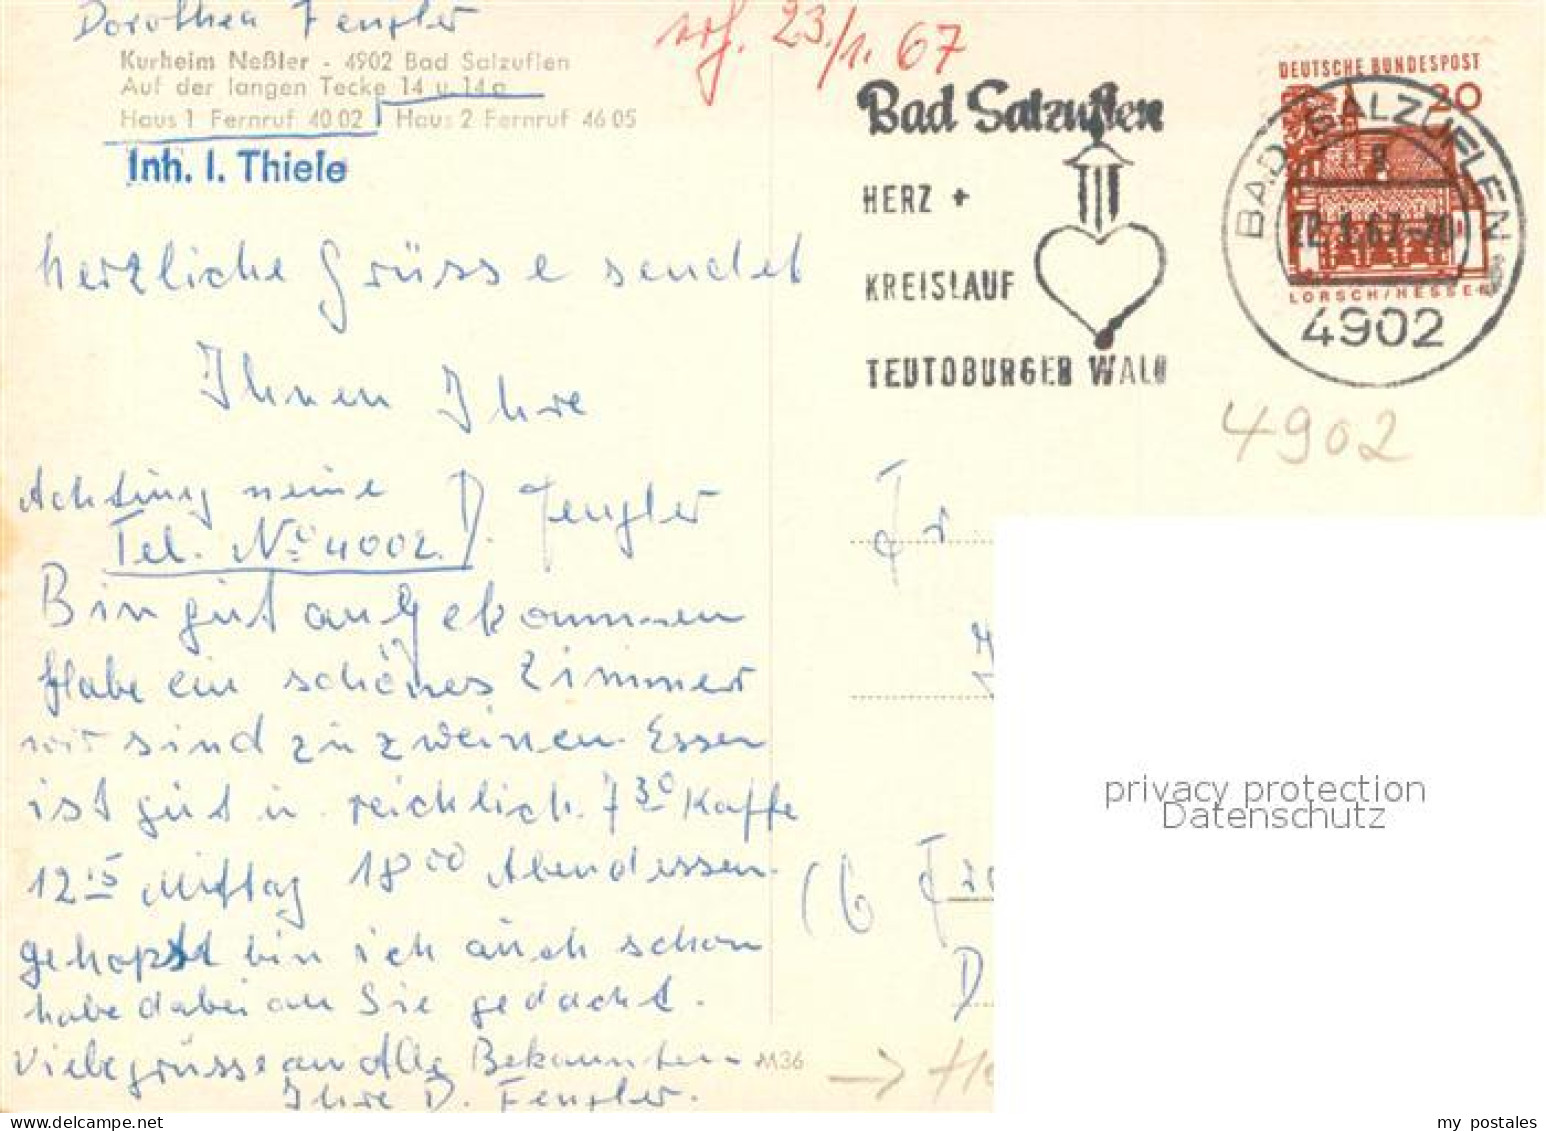 Dorothea Fengler
Kurheim Neßler - 4902 Bad Salzuflen
Auf der langen Tecke 14 u. 14a
Haus 1 Fernruf 40 02 Haus 2 Fernruf 46 05
Inh. I. Thiele
herzliche Grüsse sendet
Ihnen Ihre
Achtung meine D. Fengler
Tel. No 4002.
Bin gut angekommen
Habe ein schönes Zimmer
wir sind zu zweinen. Essen
ist gut u. reichlich. 7 30 Kaffe
12 15 Mittag 18 00 Abendessen.
gehopst bin ich auch schon
habe dabei an Sie gedacht.
Viele grüsse an Alle Bekannten
Ihre D. Fengler.
M36
23./1. 67
Bad Salzuflen
HERZ +
KREISLAUF
TEUTOBURGER WALD
DEUTSCHE BUNDESPOST
20
LORSCH/HESSEN
BAD SALZUFLEN
g
22.1.67-20
4902
4902
Fr
(b
D
privacy protection
Datenschutz
my postales